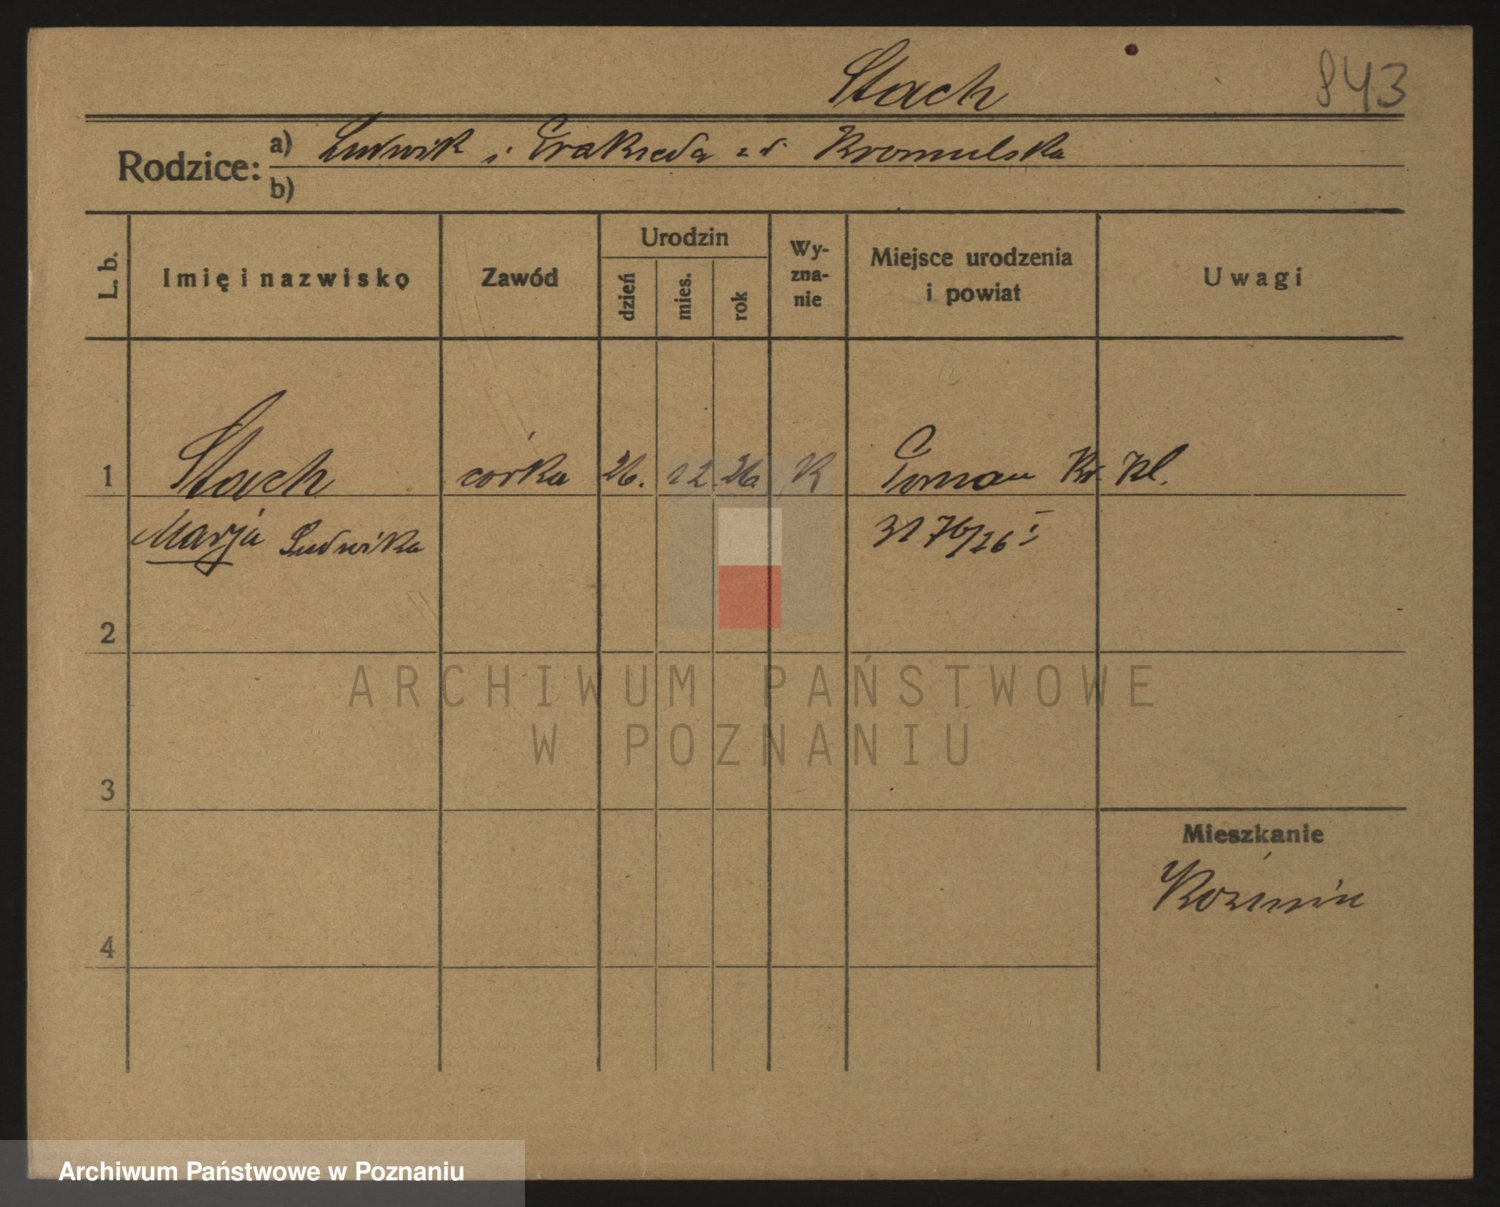 Stach
843
Rodzice: a) Ludwik i Prakseda z d. Kromulska
b)
L. b.
Imię i nazwisko
Zawód
Urodzin
dzień
mies.
rok
Wy-
zna-
nie
Miejsce urodzenia
i powiat
Uwagi
1 Stach córka 26. 12. 26 K
Marja Ludwika
2
3
4
Mieszkanie
Koźmin
ARCHIWUM PAŃSTWOWE
W POZNANIU
Archiwum Państwowe w Poznaniu